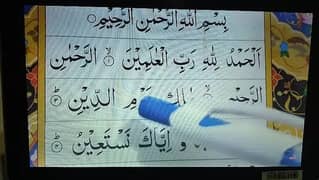 بِسْمِ اللهِ الرَّحْمٰنِ الرَّحِيْمِ
اَلْحَمْدُ لِلّٰهِ رَبِّ الْعٰلَمِيْنَ ۙ۝ الرَّحْمٰنِ
الرَّحِيْمِ الدِّيْنِ ۝
وَ اِيَّاكَ نَسْتَعِيْنُ ۝